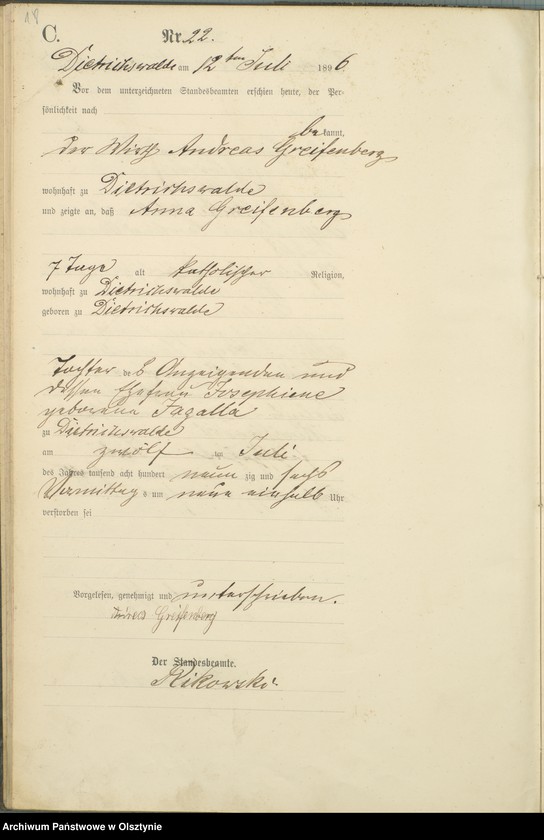 18
C.
Nr. 22.
Dietrichswalde am 12ten Juli 1896
Vor dem unterzeichneten Standesbeamten erschien heute, der Per-
sönlichkeit nach
bekannt,
der Wirth Andreas Greifenberg
wohnhaft zu Dietrichswalde
und zeigte an, daß Anna Greifenberg
7 Tage alt katholischer Religion,
wohnhaft zu Dietrichswalde
geboren zu Dietrichswalde
Tochter des Anzeigenden und
dessen Ehefrau Josephiene
geborene Jagalla
zu Dietrichswalde
am zwölf ten Juli
des Jahres tausend acht hundert neun zig und sechs
Vormittags um neun einhalb Uhr
verstorben sei
Vorgelesen, genehmigt und unterschrieben.
Andreas Greifenberg
Der Standesbeamte.
Rikowski
Archiwum Państwowe w Olsztynie